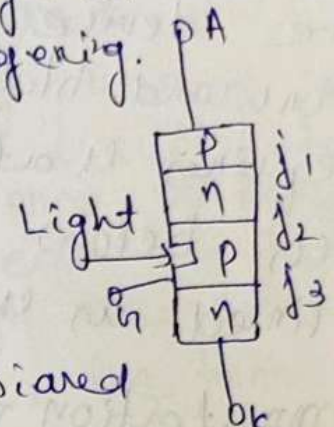 gering.
A
P
j1
n
j2
Light
P
G
j3
n
biared
K